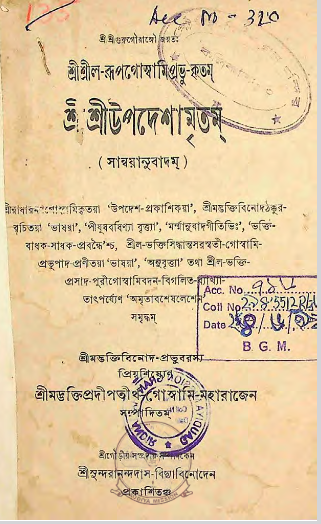 Acc No - 320
শ্রীশ্রীগুরুগৌরাঙ্গৌ জয়তঃ
শ্রীশ্রীল-রূপগোস্বামিপ্রভু-কৃতম্
শ্রীশ্রীউপদেশামৃতম্
( সান্বয়ানুবাদম্ )
'উপদেশ-প্রকাশিকয়া', শ্রীমদ্ভক্তিবিনোদঠক্কুর-
রচিতয়া 'ভাষয়া', 'পীযূষবর্ষিণ্যা বৃত্ত্যা', 'মর্ম্মানুবাদগীতিভিঃ', 'ভক্তি-
বাধক-সাধক-প্রবন্ধৈ'শ্চ, শ্রীল-ভক্তিসিদ্ধান্তসরস্বতী-গোস্বামি-
প্রভুপাদ-প্রণীতয়া 'ভাষয়া', 'অনুবৃত্ত্যা' তথা শ্রীল-ভক্তি-
প্রসাদ-পুরীগোস্বামিবদন-বিগলিত-ব্যাখ্যা-
তাৎপর্য্যেণ 'অমৃতাবশেষলেশেন'
সমৃদ্ধম্
Acc. No.
Coll No.
Date
B. G. M.
শ্রীমদ্ভক্তিবিনোদ-প্রভুবরস্য
প্রিয়শিষ্যেণ
শ্রীমদ্ভক্তিপ্রদীপতীর্থ-গোস্বামি-মহারাজেন
সম্পাদিতম্
শ্রীসুন্দরানন্দদাস-বিদ্যাবিনোদেন
প্রকাশিতঞ্চ